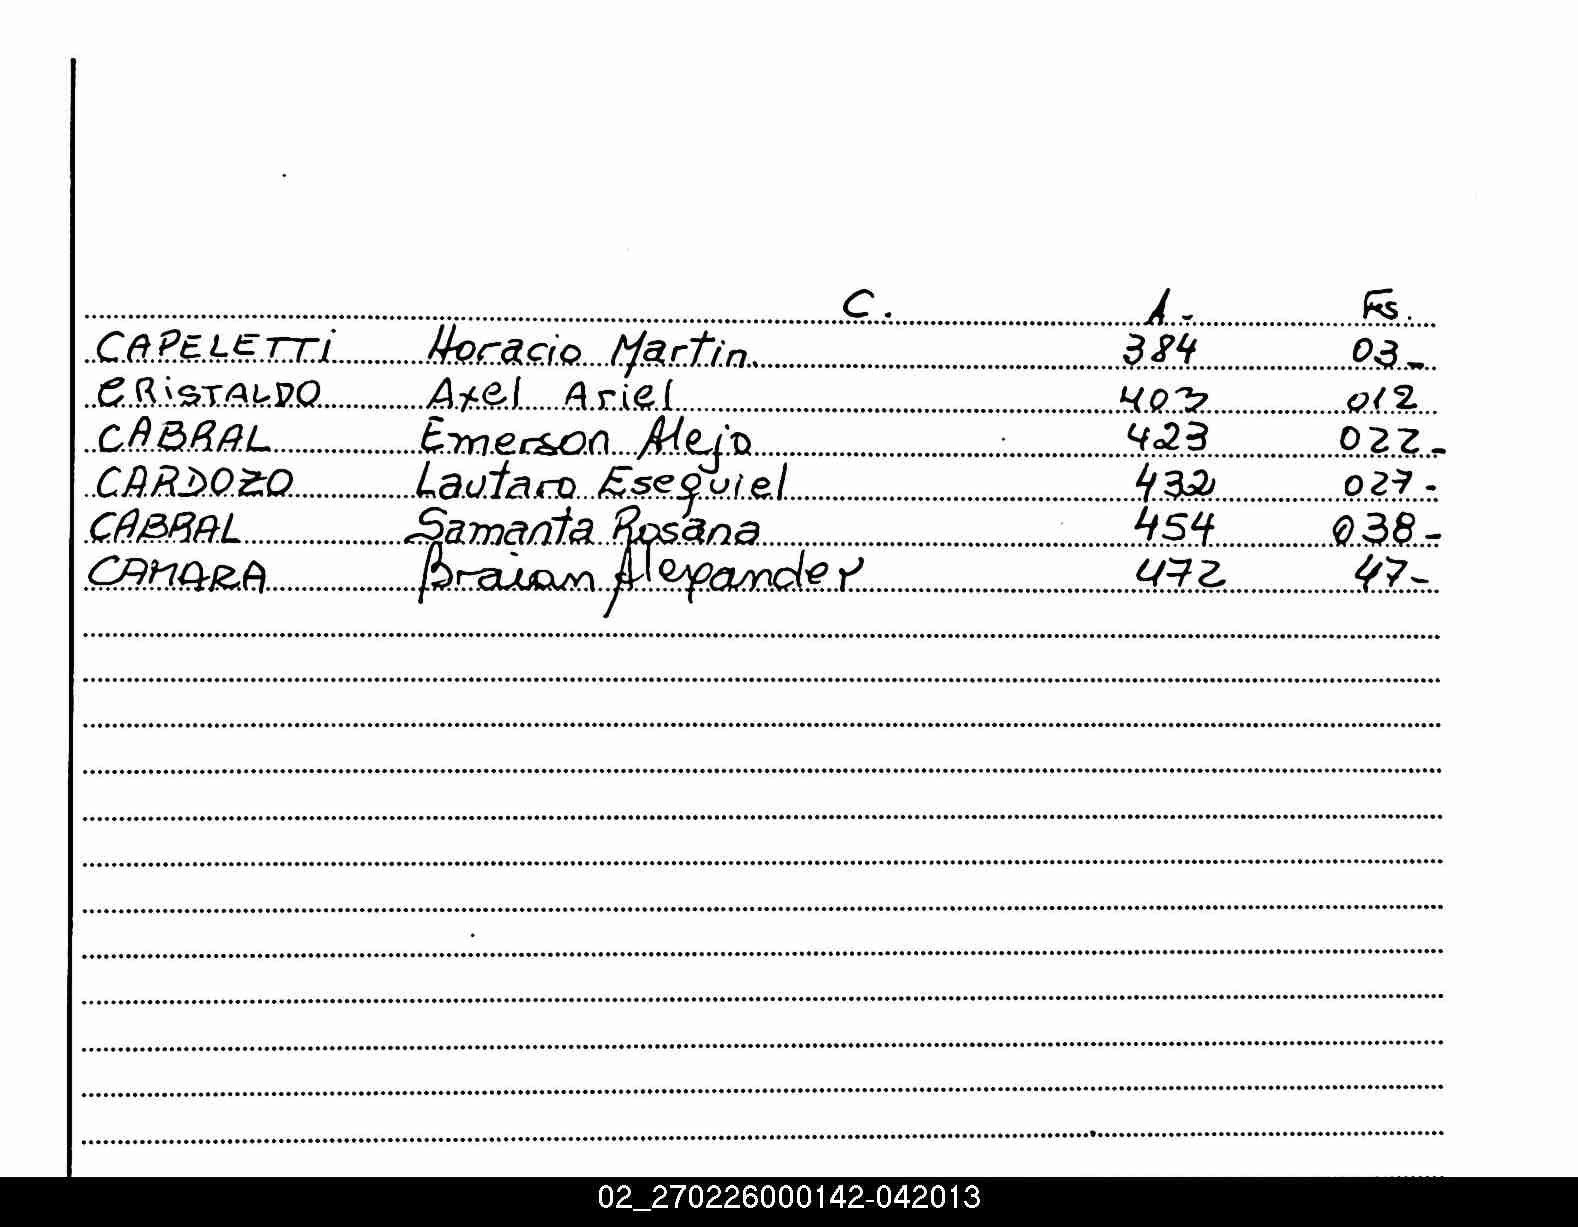 C. A.- Fs.
CAPELETTI Horacio Martin. 384 03-
CRiSTALDO Axel Ariel 403 012
CABRAL Emerson Alejo 423 022-
CARDOZO Lautaro Esequiel 432 027-
CABRAL Samanta Rosana 454 038-
CAMARA Braian Alexander 472 47-
02_270226000142-042013